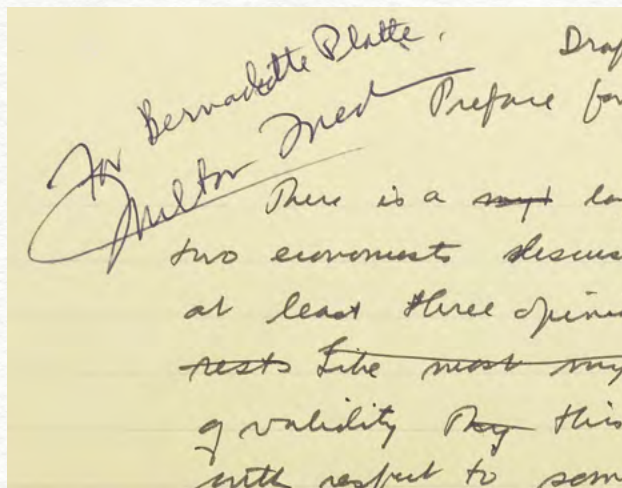 For Bernadette Platte.
Milton Fried
Draf
Preface for
There is a myt la
two economists discus
at least three opini
rests Like most my
of validity They this
with respect to som